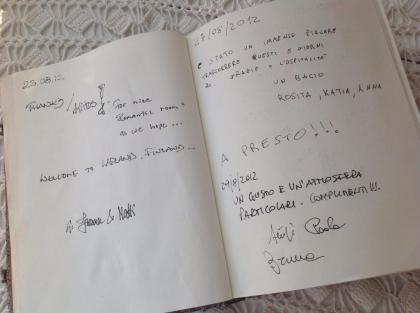 25.08.12
THANKS / KIITOS FOR NICE
ROMANTIC ROOM &
AS WE HOPE ...
WELCOME TO FINLAND...
28/08/2012
È STATO UN IMMENSO PIACERE
TRASCORRERE QUESTI 5 GIORNI
GRAZIE X L'OSPITALITÀ
UN BACIO
ROSITA, KATIA, ANNA
A PRESTO!!!
29/8/2012
UN GUSTO E UN'ATMOSFERA
PARTICOLARI. COMPLIMENTI!!!
Paola